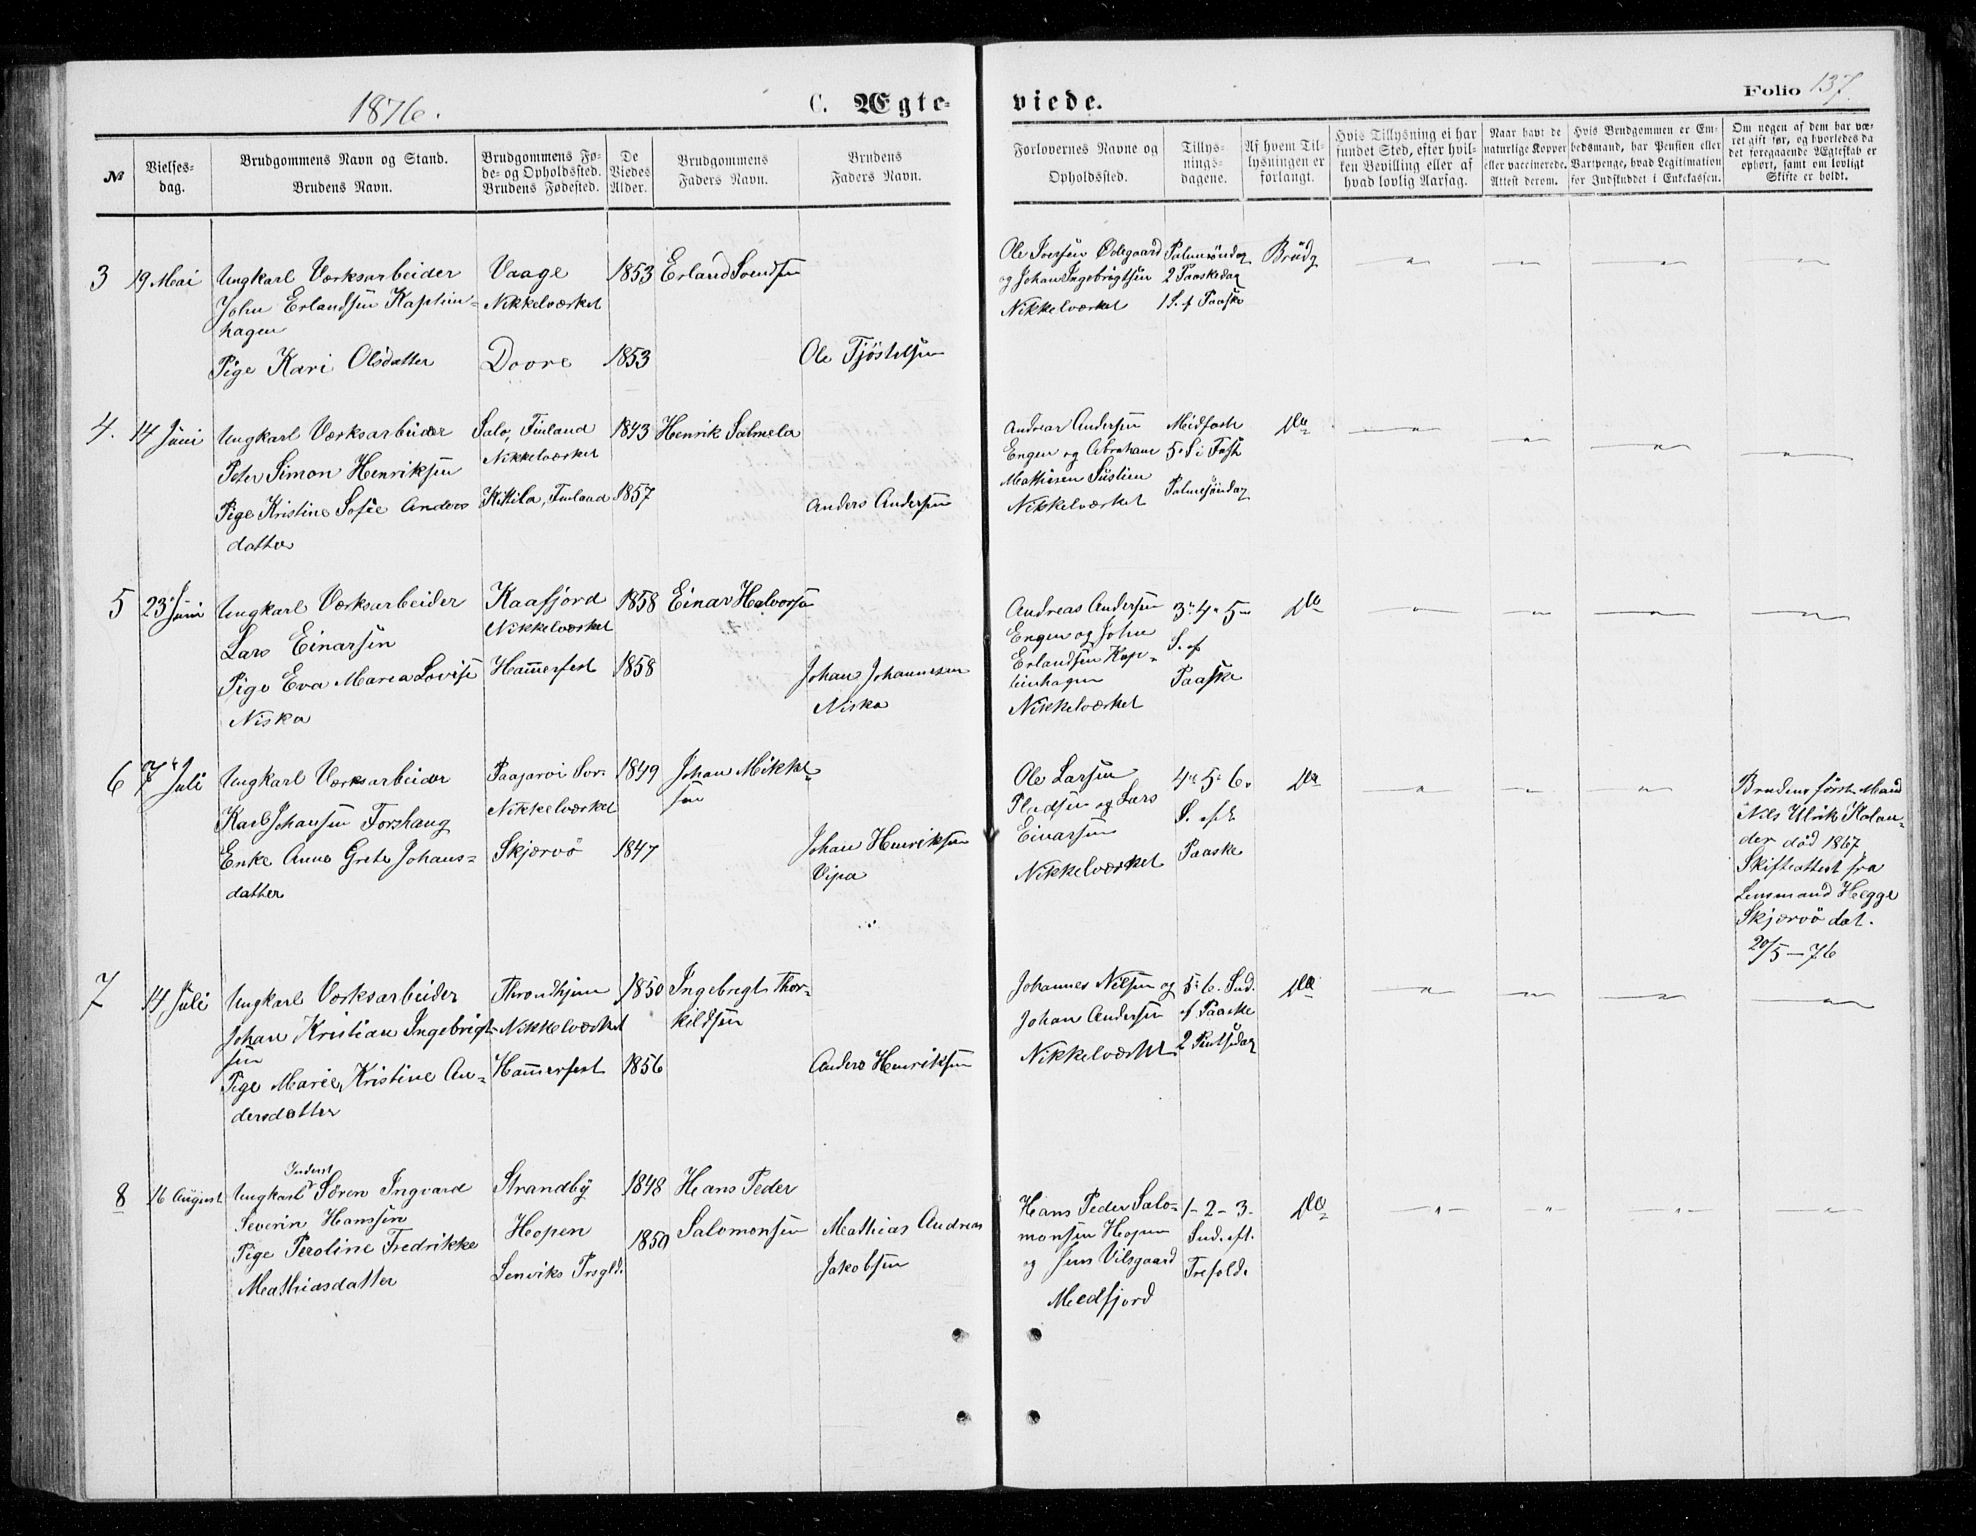 1876.
C. Ægte-
viede.
Folio 137.
No
Vielses-
dag.
Brudgommens Navn og Stand.
Brudens Navn.
Brudgommens Fø-
de- og Opholdssted.
Brudens Fødested.
De
Viedes
Alder.
Brudgommens
Faders Navn.
Brudens
Faders Navn.
Forlovernes Navne og
Opholdssted.
Tillys-
nings-
dagene.
Af hvem Til-
lysningen er
forlangt.
Hvis Tillysning ei har
fundet Sted, efter hvil-
ken Bevilling eller af
hvad lovlig Aarsag.
Naar havt de
naturlige Kopper
eller vaccinerede.
Attest derom.
Hvis Brudgommen er Em-
bedsmand, har Pension eller
Vartpenge, hvad Legitimation
for Indskuddet i Enkekassen.
Om nogen af dem har væ-
ret gift før, og hvorledes da
det foregaaende Ægteskab er
ophørt, samt om lovligt
Skifte er holdt.
3 19 Mai
Ungkarl Værksarbeider
John Erlandsen Kaptein-
hagen
Pige Kari Olsdatter
Vaage
Nikkelværket
Dovre
1853
1853
Erland Svendsen
Ole Tjöstelsen
Ole Iversen Ödegaard
og Johan Ingebrigtsen
Nikkelværket
Palmesöndag
2 Paaskedag
1 S. f Paaske
Brudg
4. 14 Juni
Ungkarl Værksarbeider
Peter Simon Henriksen
Pige Kristine Sofie Anders
datter
Salo, Finland
Nikkelværket
Kittila, Finland
1843
1857
Henrik Salmela
Anders Andersen
Andreas Andersen
Engen og Abraham
Mathisen Sustien
Nikkelværket
Midfaste
5 S i Fast
Palmesöndag
Do
5 23 Juni
Ungkarl Værksarbeider
Lars Einarsen
Pige Eva Maria Lovise
Niska
Kaafjord
Nikkelværket
Hammerfest
1858
1858
Einar Halvorsen
Johan Johannesen
Niska
Andreas Andersen
Engen og John
Erlandsen Kap-
teinhagen
Nikkelværket
3 4 5
S. ef
Paaske
Do
6 7 Juli
Ungkarl Værksarbeider
Karl Johansen Forshaug
Enke Anne Grete Johans-
datter
Paajarvi Sor.
Nikkelværket
Skjærvö
1849
1847
Johan Mikkel-
sen
Johan Henriksen
Vipa
Ole Larsen
Pladsen og Lars
Einarsen
Nikkelværket
4 5 6
S. eft
Paaske
Do
Brudens förste Mand
Nils Ulrik Kolan-
der död 1867
Skifteattest fra
Lensmand Hegge
Skjærvö dat.
20/5 - 76
7 14 Juli
Ungkarl Værksarbeider
Johan Kristian Ingebrigt-
sen
Pige Marie Kristine An-
dersdatter
Throndhjem
Nikkelværket
Hammerfest
1850
1856
Ingebrigt Thor-
kildsen
Anders Henriksen
Johannes Nilsen og
Johan Andersen
Nikkelværket
5 6. Snd.
f Paaske
2 Pintsedag
Do
8 16 August
Inderst
Ungkarl Sören Ingvard
Severin Hanssen
Pige Peroline Fredrikke
Mathiasdatter
Strandby
Hopen
Lenviks Prsgld.
1848
1850
Hans Peder
Salomonsen
Mathias Andreas
Jakobsen
Hans Peder Salo-
monsen Hopen
og Jens Vilsgaard
Medfjord
1 - 2 - 3.
Snd. eft.
Trefold.
Do